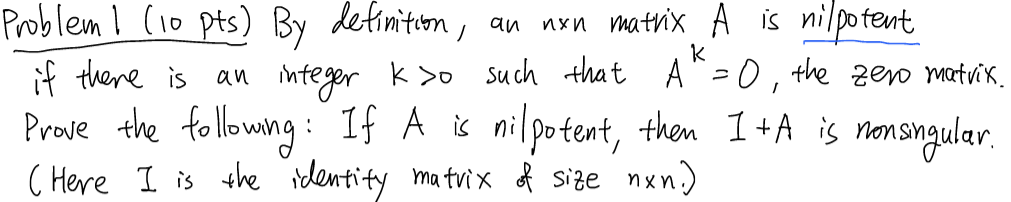 Problem 1 (10 pts) By definition, an nxn matrix A is nilpotent
if there is an integer k>0 such that A^k = 0, the zero matrix.
Prove the following: If A is nilpotent, then I+A is nonsingular.
(Here I is the identity matrix of size nxn.)